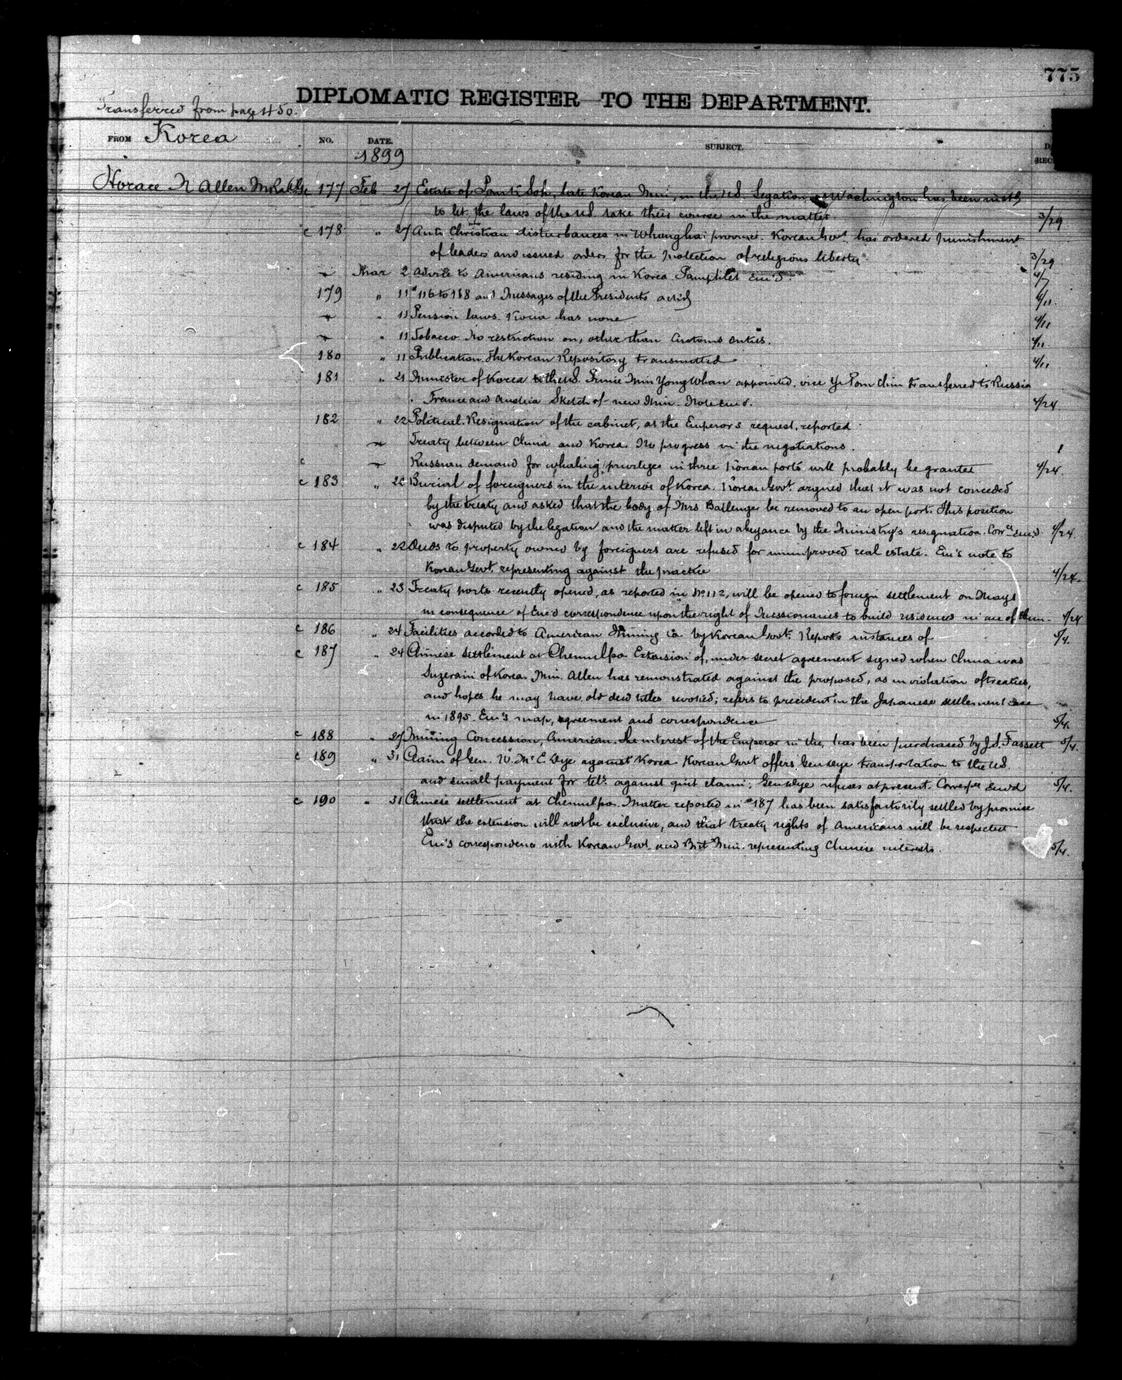 775
Transferred from page 450.
DIPLOMATIC REGISTER TO THE DEPARTMENT.
FROM Korea NO. DATE. SUBJECT.
1899
Horace N Allen 177 Feb 27 Estate of Soh, late Korean Min., in the U.S. Legation Washington has been
to let the laws of the U.S. take their course in the matter 3/29
c 178 " 27 Anti Christian disturbances in Whanghai province. Korean Govt. has ordered punishment
of leaders and issued orders for the protection of religious liberty 3/29
Mar 2 Advice to Americans residing in Korea Pamphlet Enc's. 4/7
179 " 11 #116 to 168 and Messages of the Presidents ack'd 4/11
" 11 Pension laws. Korea has none 4/11
" 11 Tobacco. No restriction on, other than Customs duties. 4/11
180 " 11 Publication. The Korean Repository transmitted 4/11
181 " 21 Minister of Korea to the U.S. Prince Min Yong Whan appointed, vice Ye Pom Chin transferred to Russia
France and Austria Sketch of new Min. Note enc'd. 4/24
182 " 22 Political. Resignation of the cabinet, at the Emperor's request, reported
Treaty between China and Korea. No progress in the negotiations.
c Russian demand for whaling privileges in three Korean ports will probably be granted 4/24
c 183 " 22 Burial of foreigners in the interior of Korea. Korean Govt. argued that it was not conceded
by the treaty and asked that the body of Mrs be removed to an open port. This position
was disputed by the legation and the matter left in abeyance by the Ministry's resignation. 4/24.
c 184 " 22 Deeds to property owned by foreigners are refused for unimproved real estate. Enc's note to
Korean Govt. representing against the practice 4/24.
c 185 " 23 Treaty ports recently opened, as reported in No 112, will be opened to foreign settlement on May 1
in consequence of Enc'd correspondence upon the right of Missionaries to build residences in one of them. 4/24
c 186 " 24 Facilities accorded to American Mining Co. by Korean Govt. Reports instances of 5/4.
c 187 " 24 Chinese settlement at Chemulpo. Extension of, under secret agreement signed when China was
Suzerain of Korea. Min. Allen has remonstrated against the proposed, as in violation of treaties,
and hopes he may have old deed titles revoked; refers to precedent in the Japanese settlement case
in 1895. Enc's map, agreement and correspondence 5/4.
c 188 " 27 Mining Concession, American. The interest of the Emperor in the, has been purchased by J.S. Fassett 5/4.
c 189 " 31 Claim of Gen. Wm. McE Dye against Korea. Korean Govt offers Gen. Dye transportation to the U.S.
and small payment for against quit claim; Gen Dye refuses at present. Enc'd 5/4.
c 190 " 31 Chinese settlement at Chemulpo. Matter reported in #187 has been satisfactorily settled by promise
that the extension will not be exclusive, and that treaty rights of Americans will be respected
Enc's correspondence with Korean Govt. and Brit Min. representing Chinese interests. 5/4.